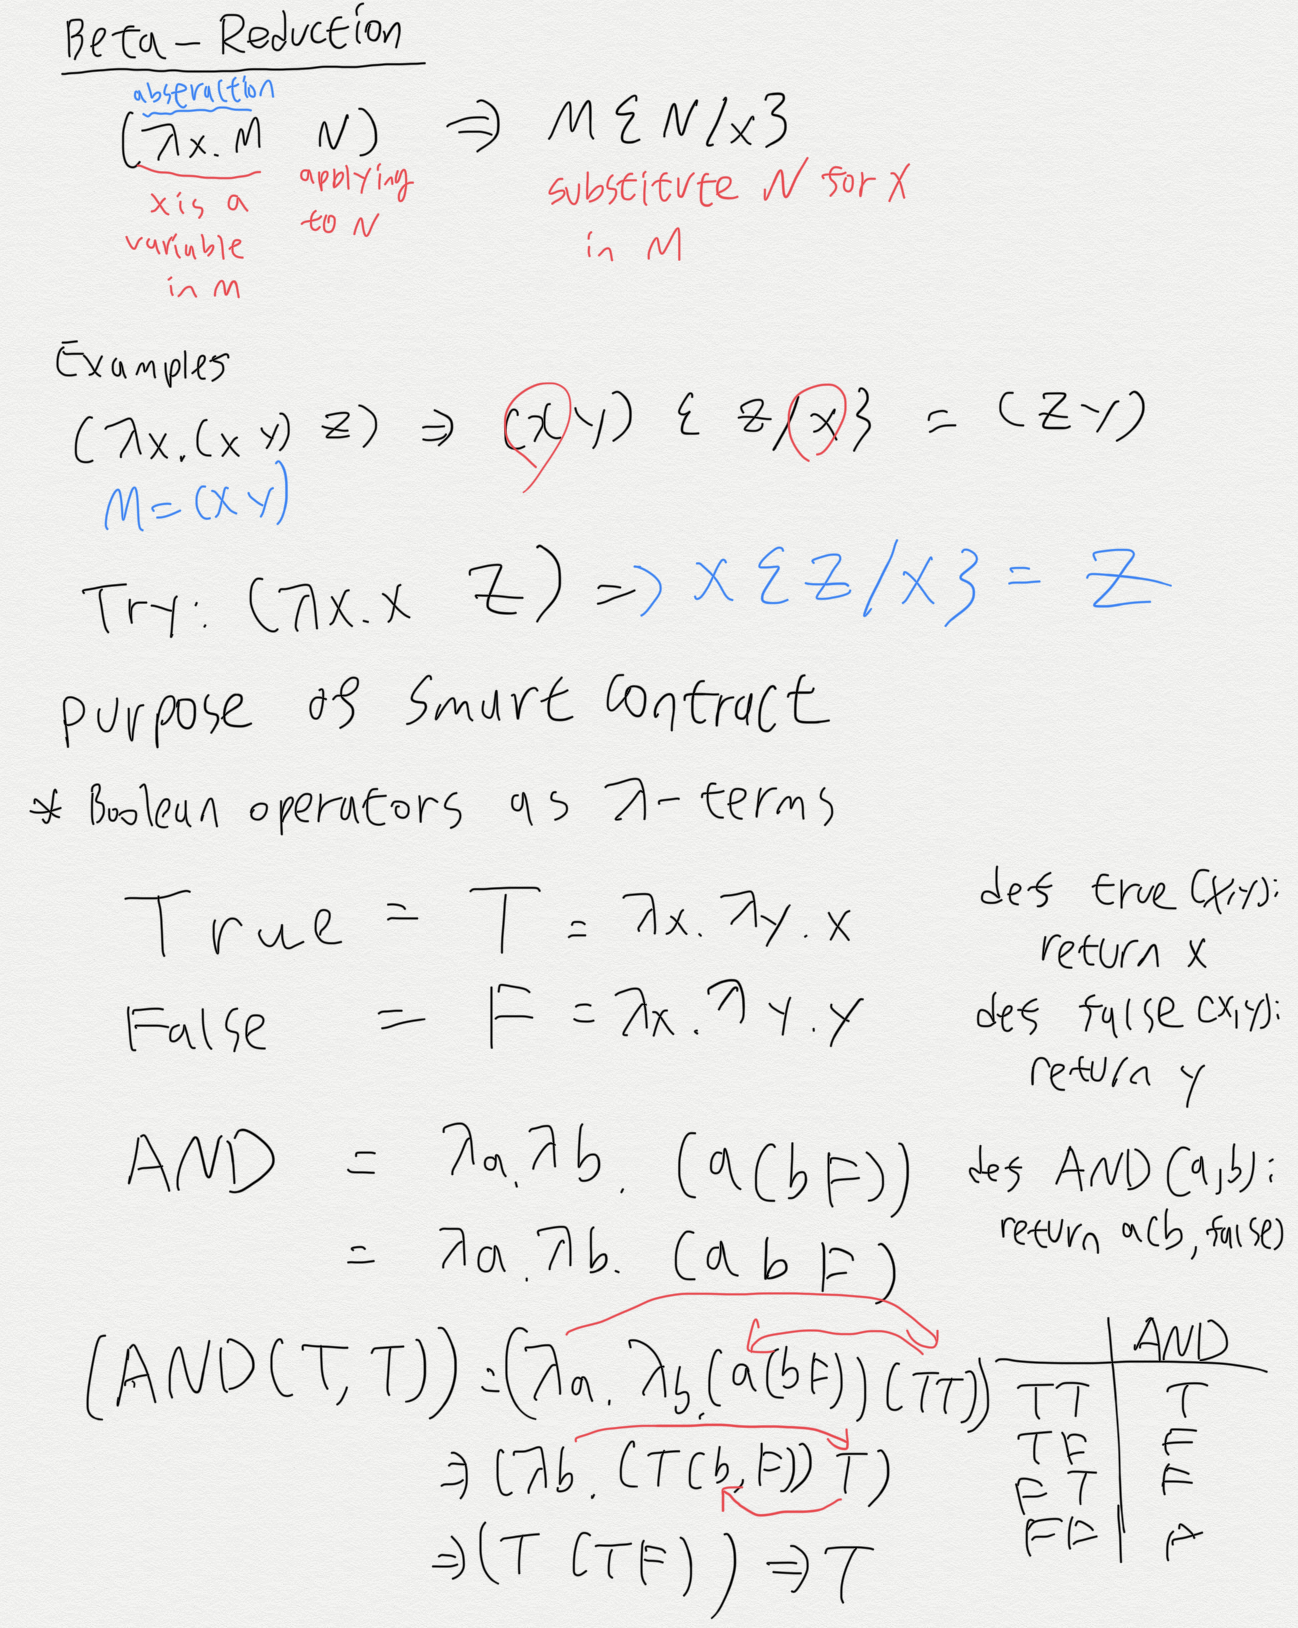 Beta-Reduction
abstraction
(λx.M N) ⇒ M{N/x}
x is a variable in M
applying to N
substitute N for x in M
Examples
(λx.(x y) z) ⇒ (x y) { z/x} = (z y)
M=(x y)
Try: (λx.x z) => x{z/x} = z
purpose of smart contract
* Boolean operators as λ-terms
True = T = λx.λy.x
def true(x,y):
return x
False = F = λx.λy.y
def false(x,y):
return y
AND = λa.λb.(a(bF))
= λa.λb.(a b F)
def AND(a,b):
return a(b,false)
(AND(T,T)) = (λa.λb.(a(bF))(TT))
⇒(λb.(T(b,F))T)
⇒(T(TF))⇒T
AND
TT T
TF F
FT F
FF F